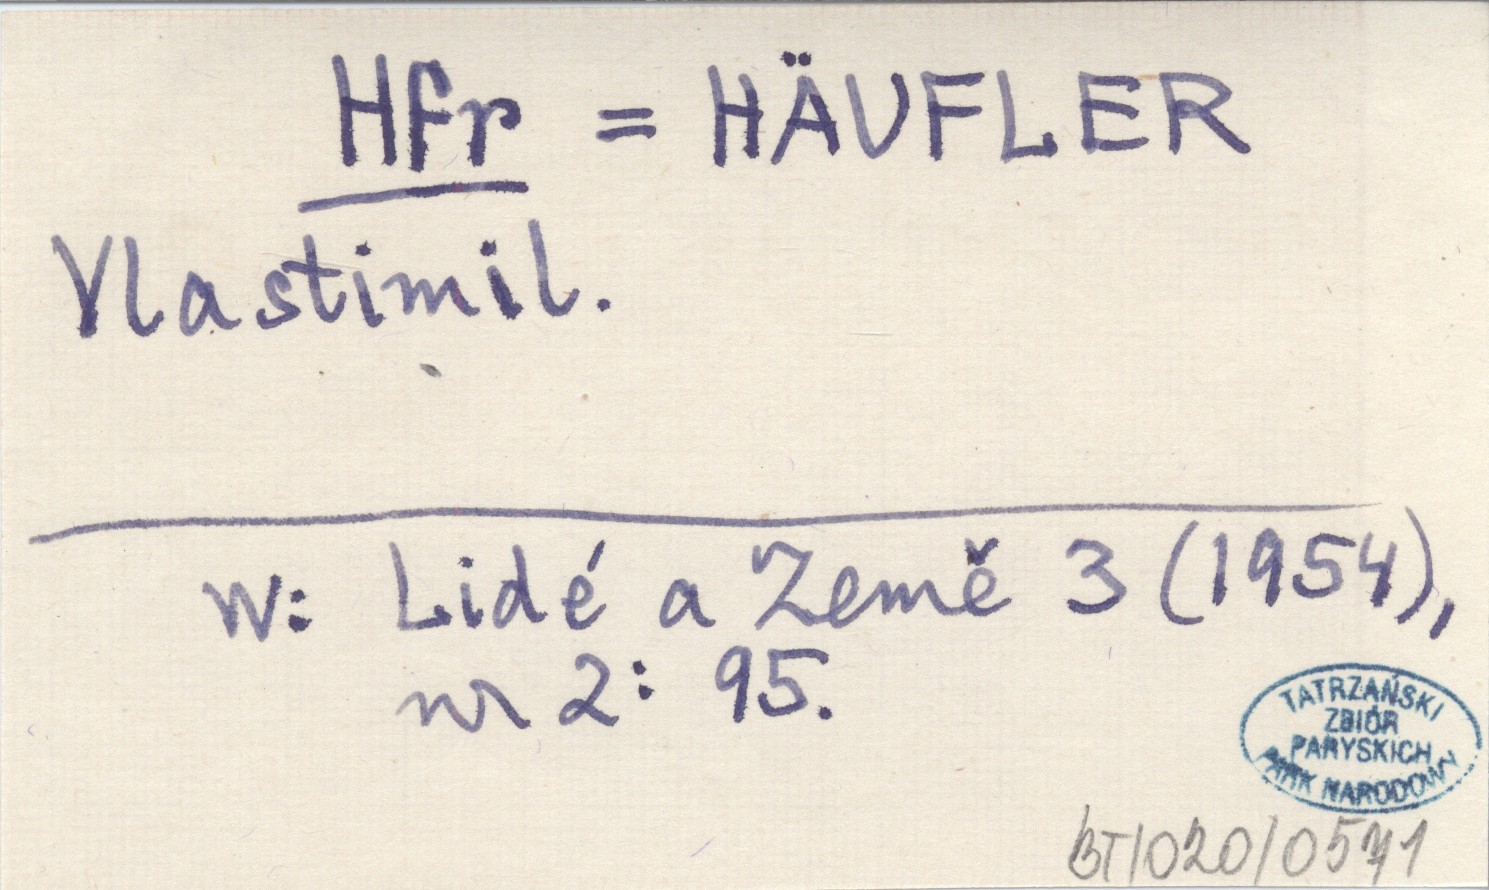 Hfr = HÄUFLER
Vlastimil.
w: Lidé a Země 3 (1954),
nr 2: 95.
TATRZAŃSKI
ZBIÓR
PARYSKICH
PARK NARODOWY
BT/020/0571